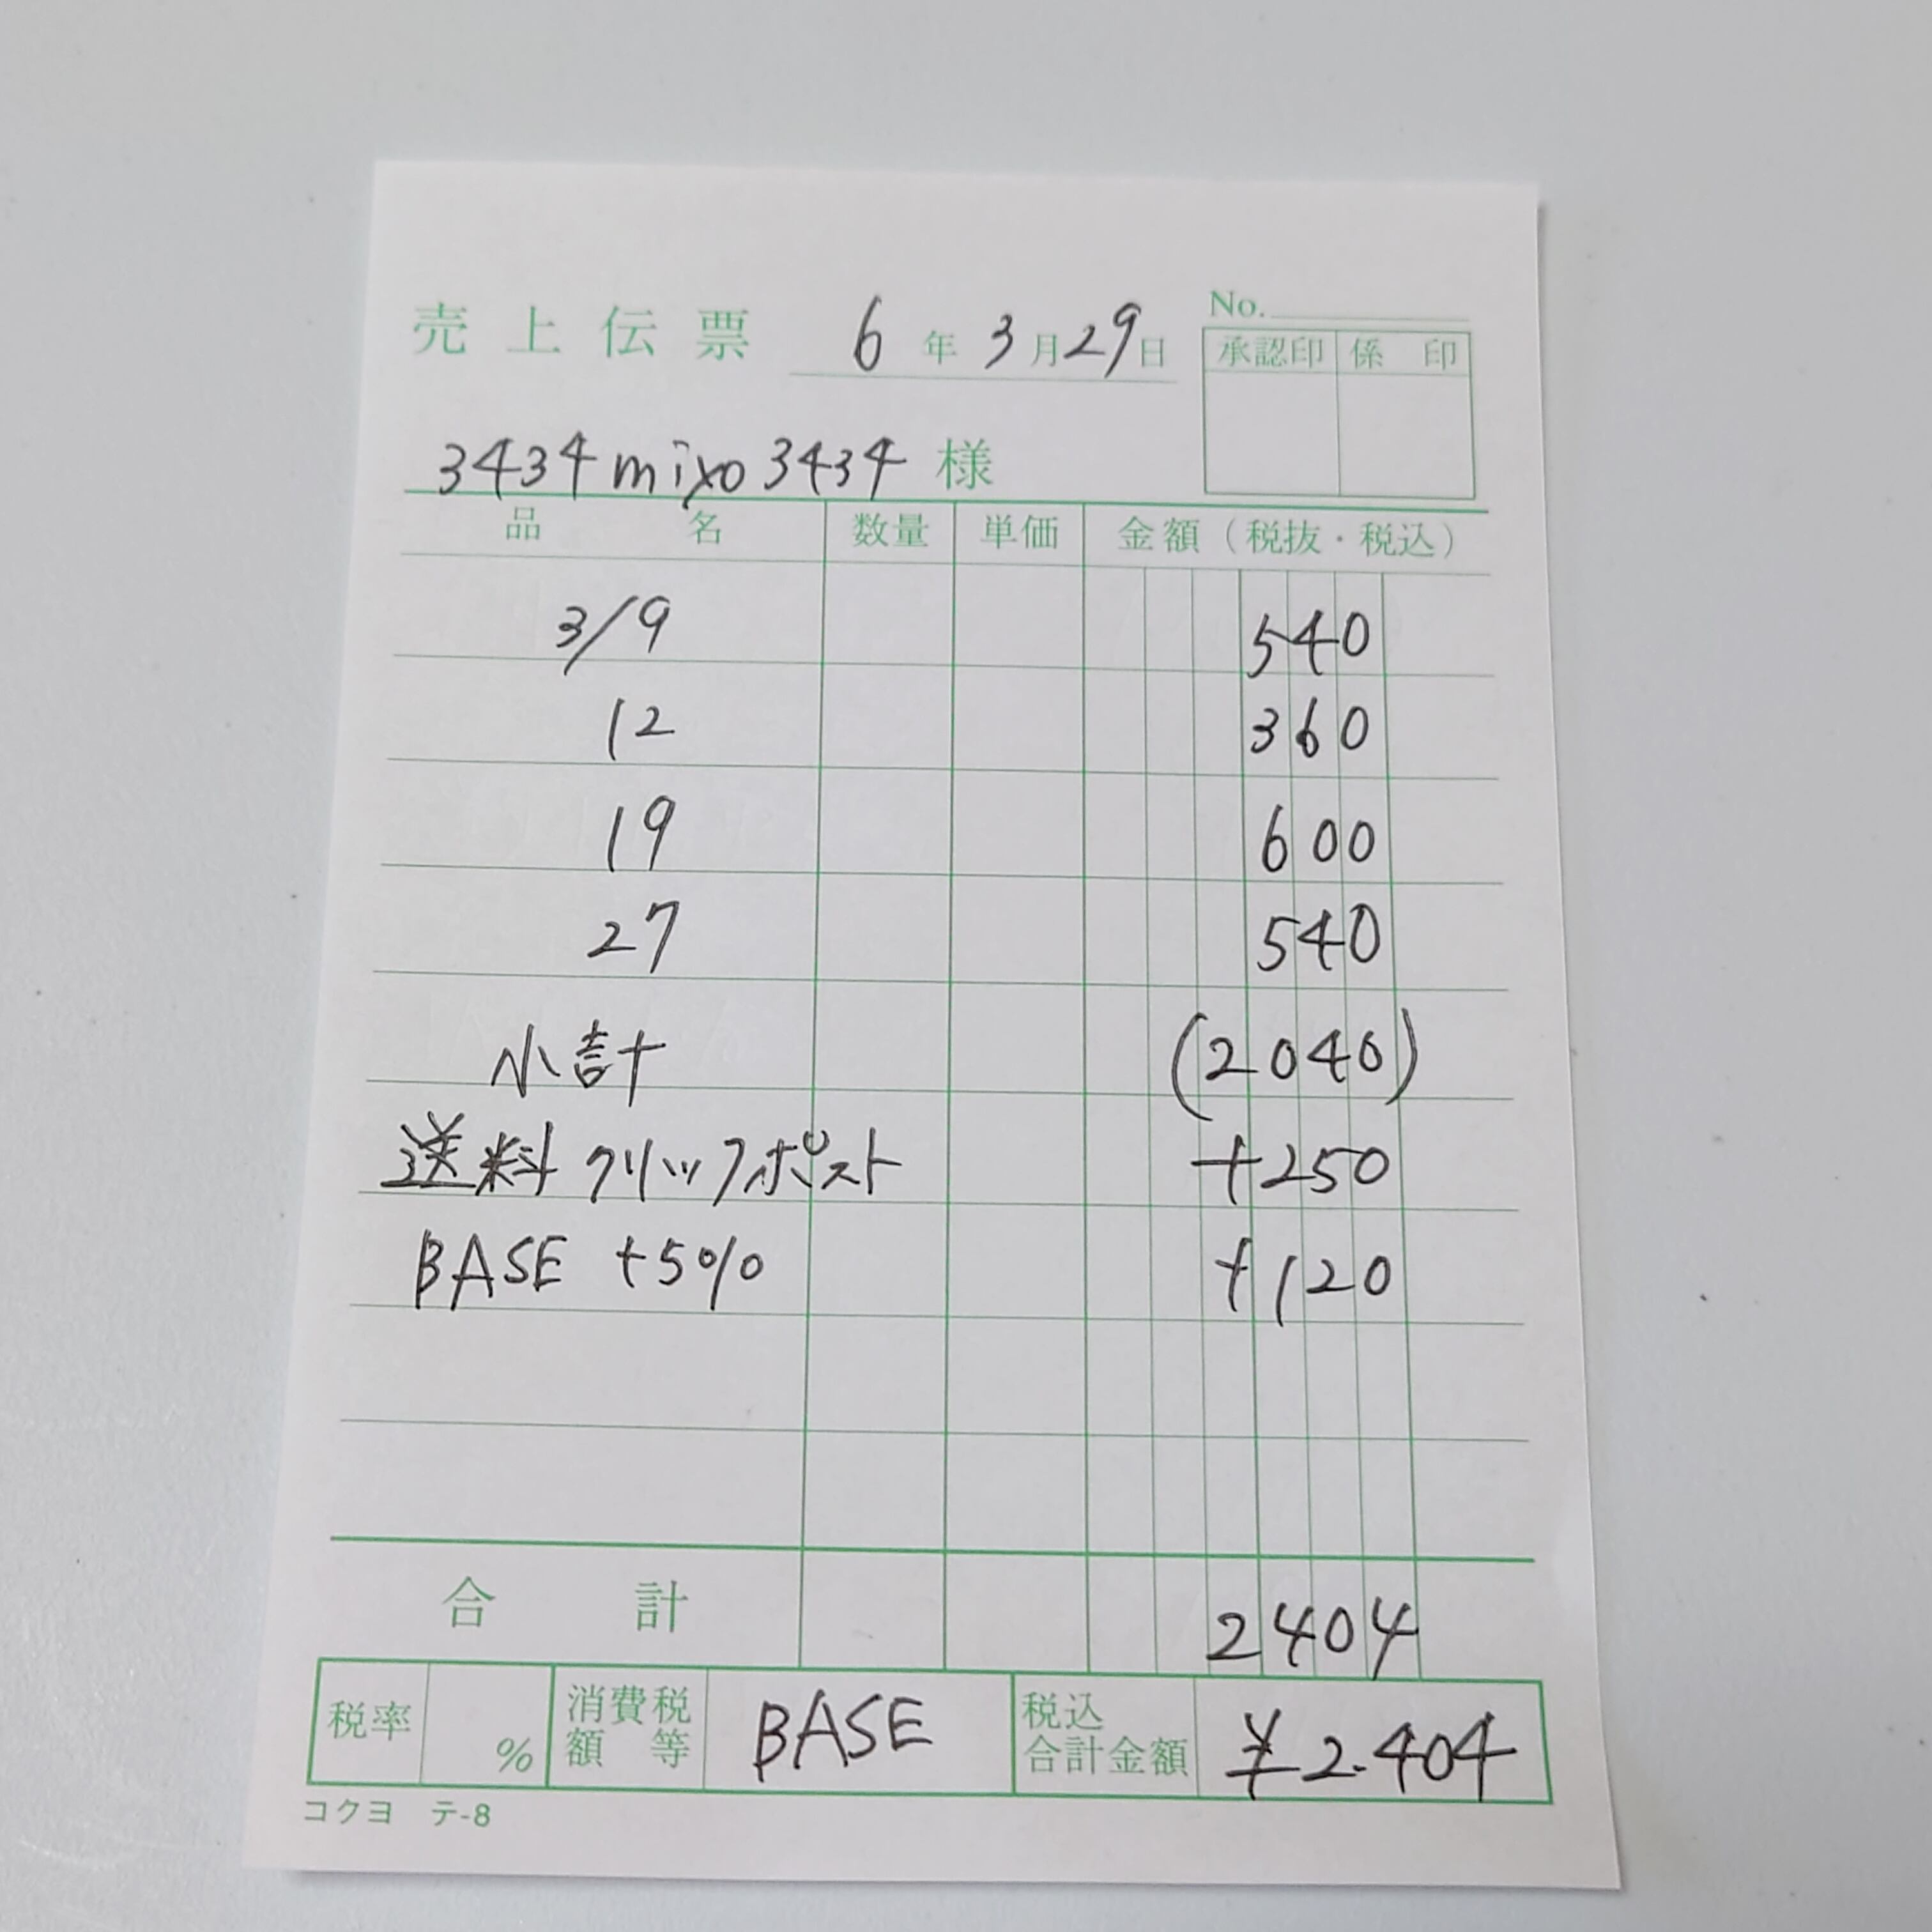 売上伝票 6年3月29日
No.
承認印 係印
3434mixo3434 様
品名 数量 単価 金額(税抜・税込)
3/9 540
12 360
19 600
27 540
小計 (2040)
送料 クリックポスト +250
BASE +5% +120
合計 2404
税率 % 消費税額等 BASE 税込合計金額 ¥2.404
コクヨ テ-8